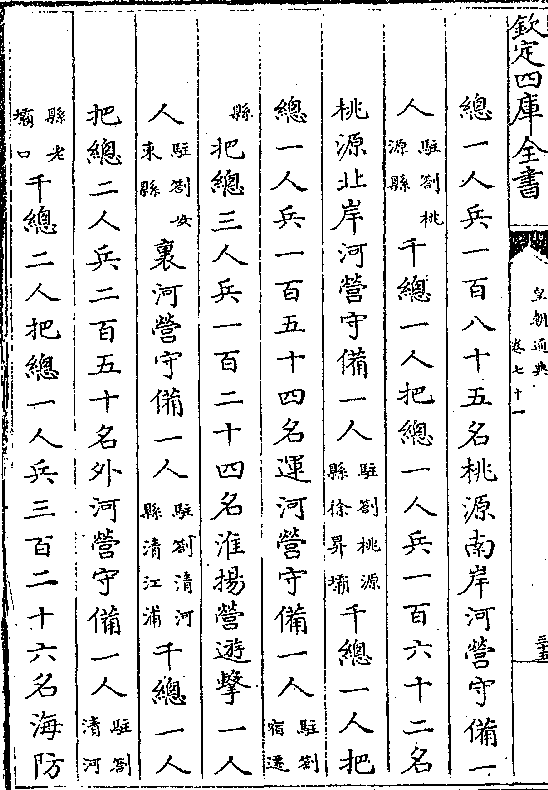 欽定四庫全書
皇朝通典
卷七十一
三五
總一人兵一百八十五名桃源南岸河營守備一
人駐劄桃源縣千總一人把總一人兵一百六十二名
桃源北岸河營守備一人駐劄桃源縣徐昇壩千總一人把
總一人兵一百五十四名運河營守備一人駐劄宿遷
縣把總三人兵一百二十四名淮揚營遊擊一人
人駐劄安東縣裏河營守備一人駐劄清河縣清江浦千總一人
把總二人兵二百五十名外河營守備一人駐劄清河
縣老壩口千總二人把總一人兵三百二十六名海防